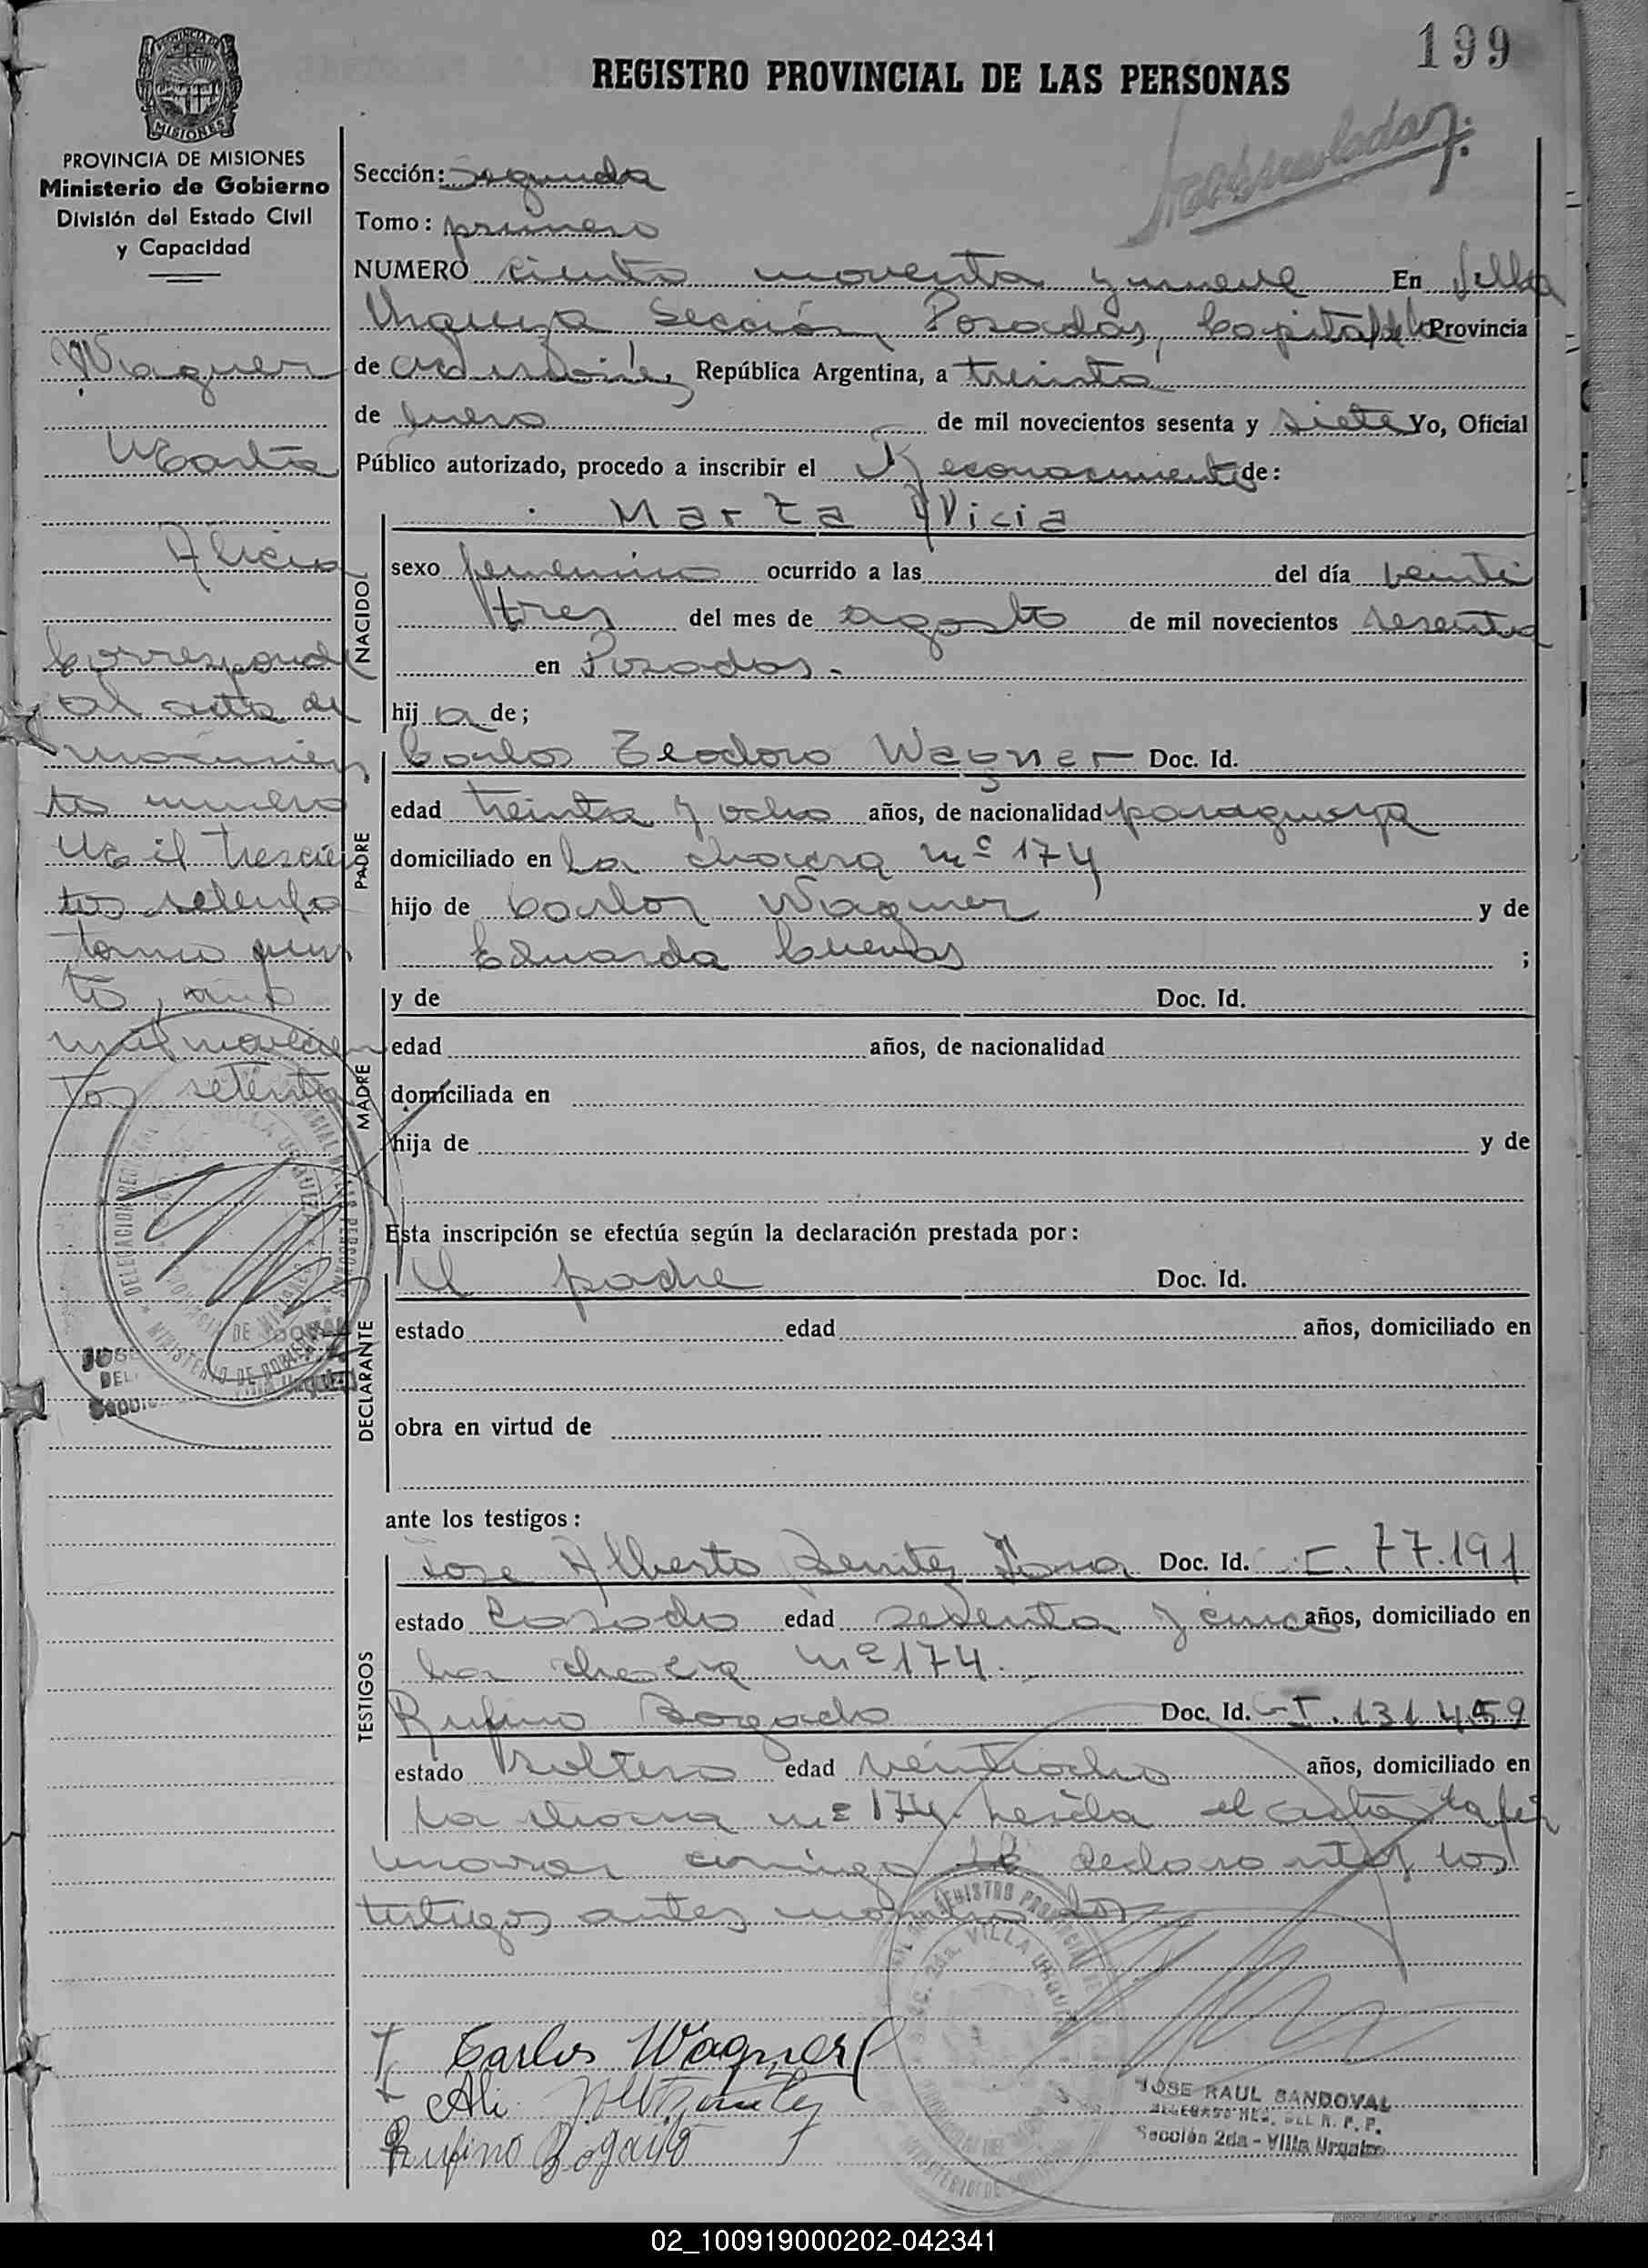 199
REGISTRO PROVINCIAL DE LAS PERSONAS
MISIONES
PROVINCIA DE MISIONES
Ministerio de Gobierno
División del Estado Civil
y Capacidad
Wagner
Marta
Alicia
Corresponde
al acta de
nacimien
to numero
Mil trescien
tos setenta
tomo quin
to, año
mil novecien
tos setenta
Sección: Segunda
Tomo: primero
NUMERO ciento noventa y nueve En Villa
Urquiza Sección Posadas, Capital de la Provincia
de Misiones, República Argentina, a treinta
de Enero de mil novecientos sesenta y siete Yo, Oficial
Público autorizado, procedo a inscribir el Reconocimiento de:
Marta Alicia
NACIDO
sexo femenino ocurrido a las del día veinti
tres del mes de agosto de mil novecientos sesenta
en Posadas.-
hij a de;
PADRE
Carlos Teodoro Wagner Doc. Id.
edad treinta y ocho años, de nacionalidad paraguaya
domiciliado en La chacra nº 174
hijo de Carlos Wagner y de
Eduarda Cuevas ;
MADRE
y de Doc. Id.
edad años, de nacionalidad
domiciliada en
hija de y de
Esta inscripción se efectúa según la declaración prestada por:
DECLARANTE
El padre Doc. Id.
estado edad años, domiciliado en
obra en virtud de
ante los testigos:
TESTIGOS
Jose Alberto Benitez Doc. Id. C.I. 77.191
estado Casado edad setenta y cinco años, domiciliado en
La chacra nº 174.
Rufino Bogado Doc. Id. C.I. 131.459
estado soltero edad veintiocho años, domiciliado en
La chacra nº 174. Leída el acta la fir
maron conmigo el declarante y los
testigos antes nombrados
Carlos Wagner
Rufino Bogado
VILLA URQUIZA
JOSE RAUL SANDOVAL
DELEGADO REG. DEL R. P. P.
Sección 2da - Villa Urquiza
02_100919000202-042341